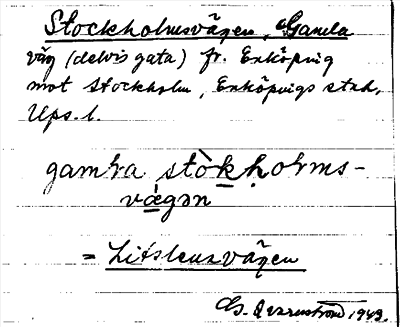 Stockholmsvägen, Gamla
väg (delvis gata) fr. Enköping
mot Stockholm, Enköpings stad,
Ups. l.
gamla stòkḥolms-
vägən
= Litslenavägen
1943.